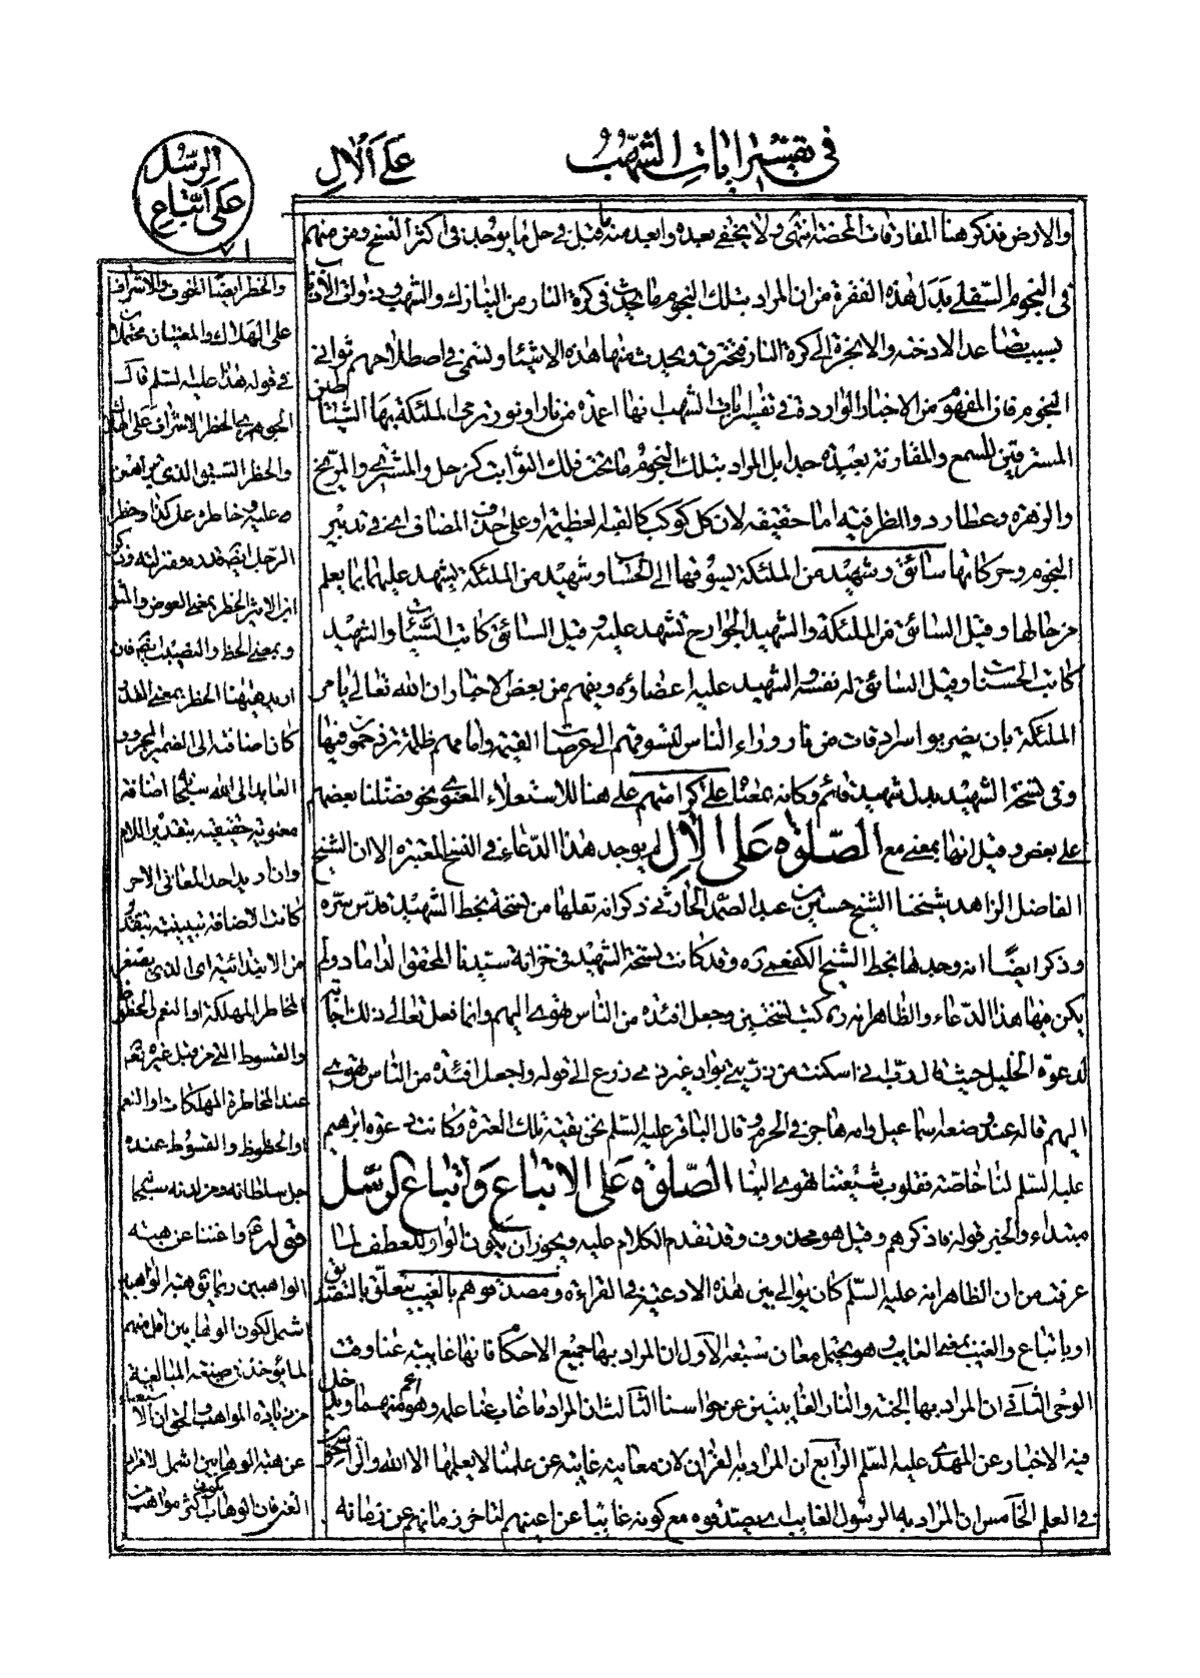 في تفسير ايات الشهب
على الال
الرسل
على اتباع
٧١
والارض فذكر هنا المفارقات المحضة انتهى ولا يخفى بعده وابعد منه ما قيل في حل ما يوجد في اكثر النسخ ومن منهم
في النجوم السفلى بدل هذه الفقرة من ان المراد بتلك النجوم ما يحدث في كرة النار من النيازك والشهب وذوات الاذناب
بسبب تصاعد الادخنة والابخرة الى كرة النار فتحترق ويحدث منها هذه الاشياء وتسمى في اصطلاحهم ثواني
النجوم فان المفهوم من الاخبار الواردة في تفسير ايات الشهب انها اعمدة من نار او نور ترمى الملئكة بها الشياطين
المسترقين للسمع والمقاونة بعيدة جدا بل المراد بتلك النجوم ما تحت فلك الثوابت كزحل والمشترى والمريخ
والزهرة وعطارد والظرفية اما حقيقة لان كل كوكب كالقبة العظيمة او على حذف المضاف اى في تدبير
النجوم وحركاتها سائق وشهيد من الملئكة يسوقها الى الحساب وشهيد من الملئكة يشهد عليها بما يعلم
من حالها وقيل السائق من الملئكة والشهيد الجوارح تشهد عليه وقيل السائق كاتب السيئات والشهيد
كاتب الحسنات وقيل السائق له نفسه والشهيد عليه اعضاؤه ويفهم من بعض الاخبار ان الله تعالى يامر
الملئكة بان يضربوا سرادقات من نار وراء الناس لتسوقهم الى عرصات القيمة وامامهم ظلمة تزدحمون فيها
وفي نسخة الشهيد بدل شهيد قائم وكانه بمعناه على كرامتهم على هنا للاستعلاء المعنوى نحو فضلنا بعضهم
على بعض وقيل انها بمعنى مع الصلوة على الال لم يوجد هذا الدعاء في النسخ المعتبرة الا ان الشيخ
الفاضل الزاهد شيخنا الشيخ حسين بن عبد الصمد الحارثى ذكر انه نقلها من نسخة بخط الشهيد قدس سره
وذكر ايضا انه وجدها بخط الشيخ الكفعمى ره وقد كانت نسخة الشهيد في خزانة سيدنا المحقق الداماد ولم
يكن فيها هذا الدعاء والظاهر انه ره كتب نسختين وجعل افئدة من الناس تهوى اليهم وانما فعل تعالى ذلك اجابة
لدعوة الخليل حيث قال رب انى اسكنت من ذريتى بواد غير ذى زرع الى قوله واجعل افئدة من الناس تهوى
اليهم قاله عند وضعه اسماعيل وامه هاجر في الحرم وقال الباقر عليه السلم نحن بقية تلك العترة وكانت دعوة ابرهيم
عليه السلم لنا خاصة فقلوب شيعتنا تهوى الينا الصلوة على الاتباع واتباع الرسل
مبتداء والخبر قوله فاذكرهم وقيل هو محذوف وقد تقدم الكلام عليه ويجوز ان يكون الواو للعطف لما
عرفت من ان الظاهر انه عليه السلم كان يوالى بين هذه الادعية في القراءة ومصدقوهم بالغيب يتعلق بالتصديق
او باتباع والغيب بمعنى الغايب وهو يحتمل معان سبعة الاول ان المراد بها جميع الاحكام فانها غايبة عنا وقت
الوحى الثانى ان المراد بها الجنة والنار الغايبتين عن حواسنا الثالث ان المراد ما غاب عنا علمه وهو اعم منهما ويدخل
فيه الاخبار عن المهدى عليه السلم الرابع ان المراد به القران لان معانيه غايبة عن علمنا لا يعلمها الا الله والراسخون
في العلم الخامس ان المراد به الرسول الغايب يصدقوه مع كونه غايبا عن اعينهم لتاخر زمانهم عن زمانه
والخطر ايضا الخوف والاشراف
على الهلاك والمعنيان محتملان
في قوله هذا عليه السلم قال
الجوهرى الخطر الاشراف على الهلاك
والخطر السبق الذى يتراهن
عليه وخاطره على كذا وخطر
الرجل ايضا قدره ومنزلته وذكر
ابن الاثير الخطر بمعنى العوض والمثل
وبمعنى الحظ والنصيب ايضا فان
اريد هيهنا الخطر بمعنى القدر
كان اضافته الى الضمير المجرور
العايد الى الله سبحانه اضافة
معنوية حقيقية بتقدير اللام
وان اريد احد المعانى الاخر
كانت الاضافة تبيينية بتقدير
من الابتدائية اى الذى يصغر
المخاطر المهلكة او النعم والحظوظ
والقسوط التى من قبل غيره تعالى
عند المخاطرة المهلكات او النعم
والحظوظ والقسوط عنده
جل سلطانه ومن لدنه سبحانه
قوله ع واغننا عن هبة
الواهبين ربما يتوهم الواهبين
اشمل لكون الوهابين اقل منهم
لما يؤخذ في صيغة المبالغة
من زيادة المواهب والحق ان الاستغناء
عن هبة الوهابين اشمل لافراد
الغنى فان الوهاب يكون اكثر مواهب